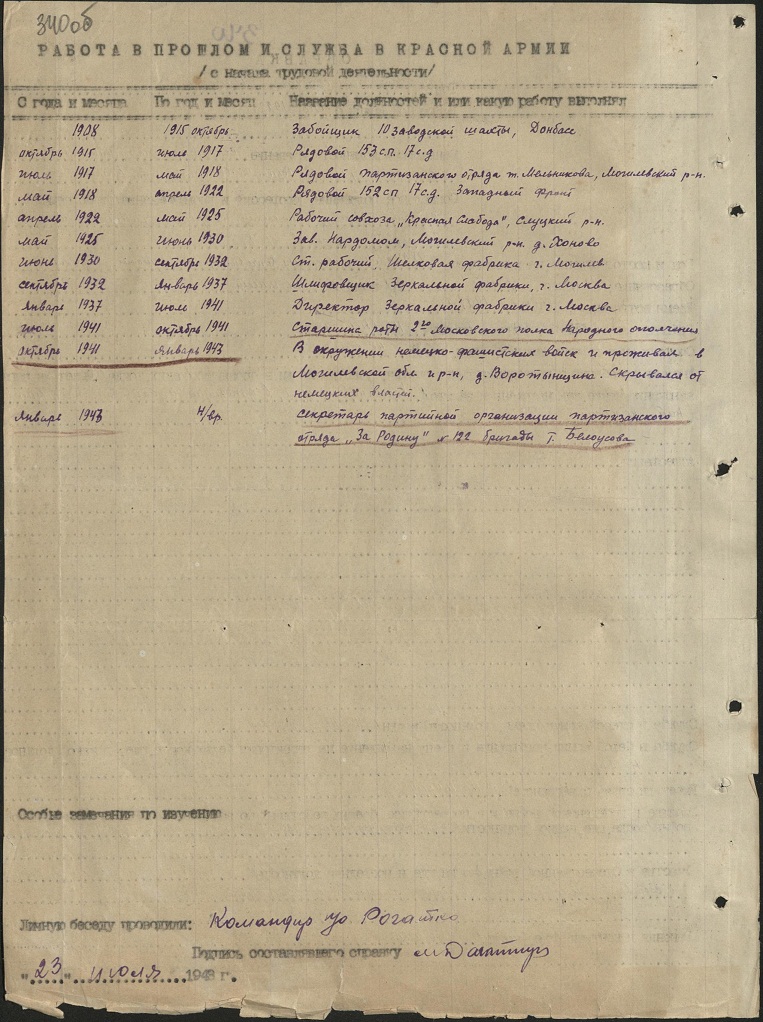 340об
РАБОТА В ПРОШЛОМ И СЛУЖБА В КРАСНОЙ АРМИИ
/ с начала трудовой деятельности/
С года и месяца По год и месяц Название должностей и или какую работу выполнял
1908 1915 октябрь Забойщик 10 заводской шахты, Донбасс
октябрь 1915 июль 1917 Рядовой 153 сп. 17 с.д
июль 1917 май 1918 Рядовой партизанского отряда т. Мельникова, Могилевский р-н.
май 1918 апрель 1922 Рядовой 152 сп 17 с.д. Западный фронт
апрель 1922 май 1925 Рабочий совхоза „Красная Слабода", Слуцкий р-н.
май 1925 июнь 1930 Зав. Нардомом, Могилевский р-н. д. Хоново
июнь 1930 сентябрь 1932 Ст. рабочий, Шелковая фабрика г. Могилев
сентябрь 1932 январь 1937 Шлифовщик Зеркальной фабрики, г. Москва
январь 1937 июль 1941 Директор Зеркальной фабрики г. Москва
июль 1941 октябрь 1941 Старшина роты 2го Московского полка Народного ополчения
октябрь 1941 январь 1943 В окружении немецко-фашистских войск и проживал в
Могилевской обл и р-н, д. Воротыньщина. Скрывался от
немецких властей.
январь 1943 н/вр. Секретарь партийной организации партизанского
отряда „За Родину" № 122 бригады т. Белоусова
Особые замечания по изучению
Личную беседу проводили: Командир
Подпись составлявшего справку
"23" июля 1943 г.